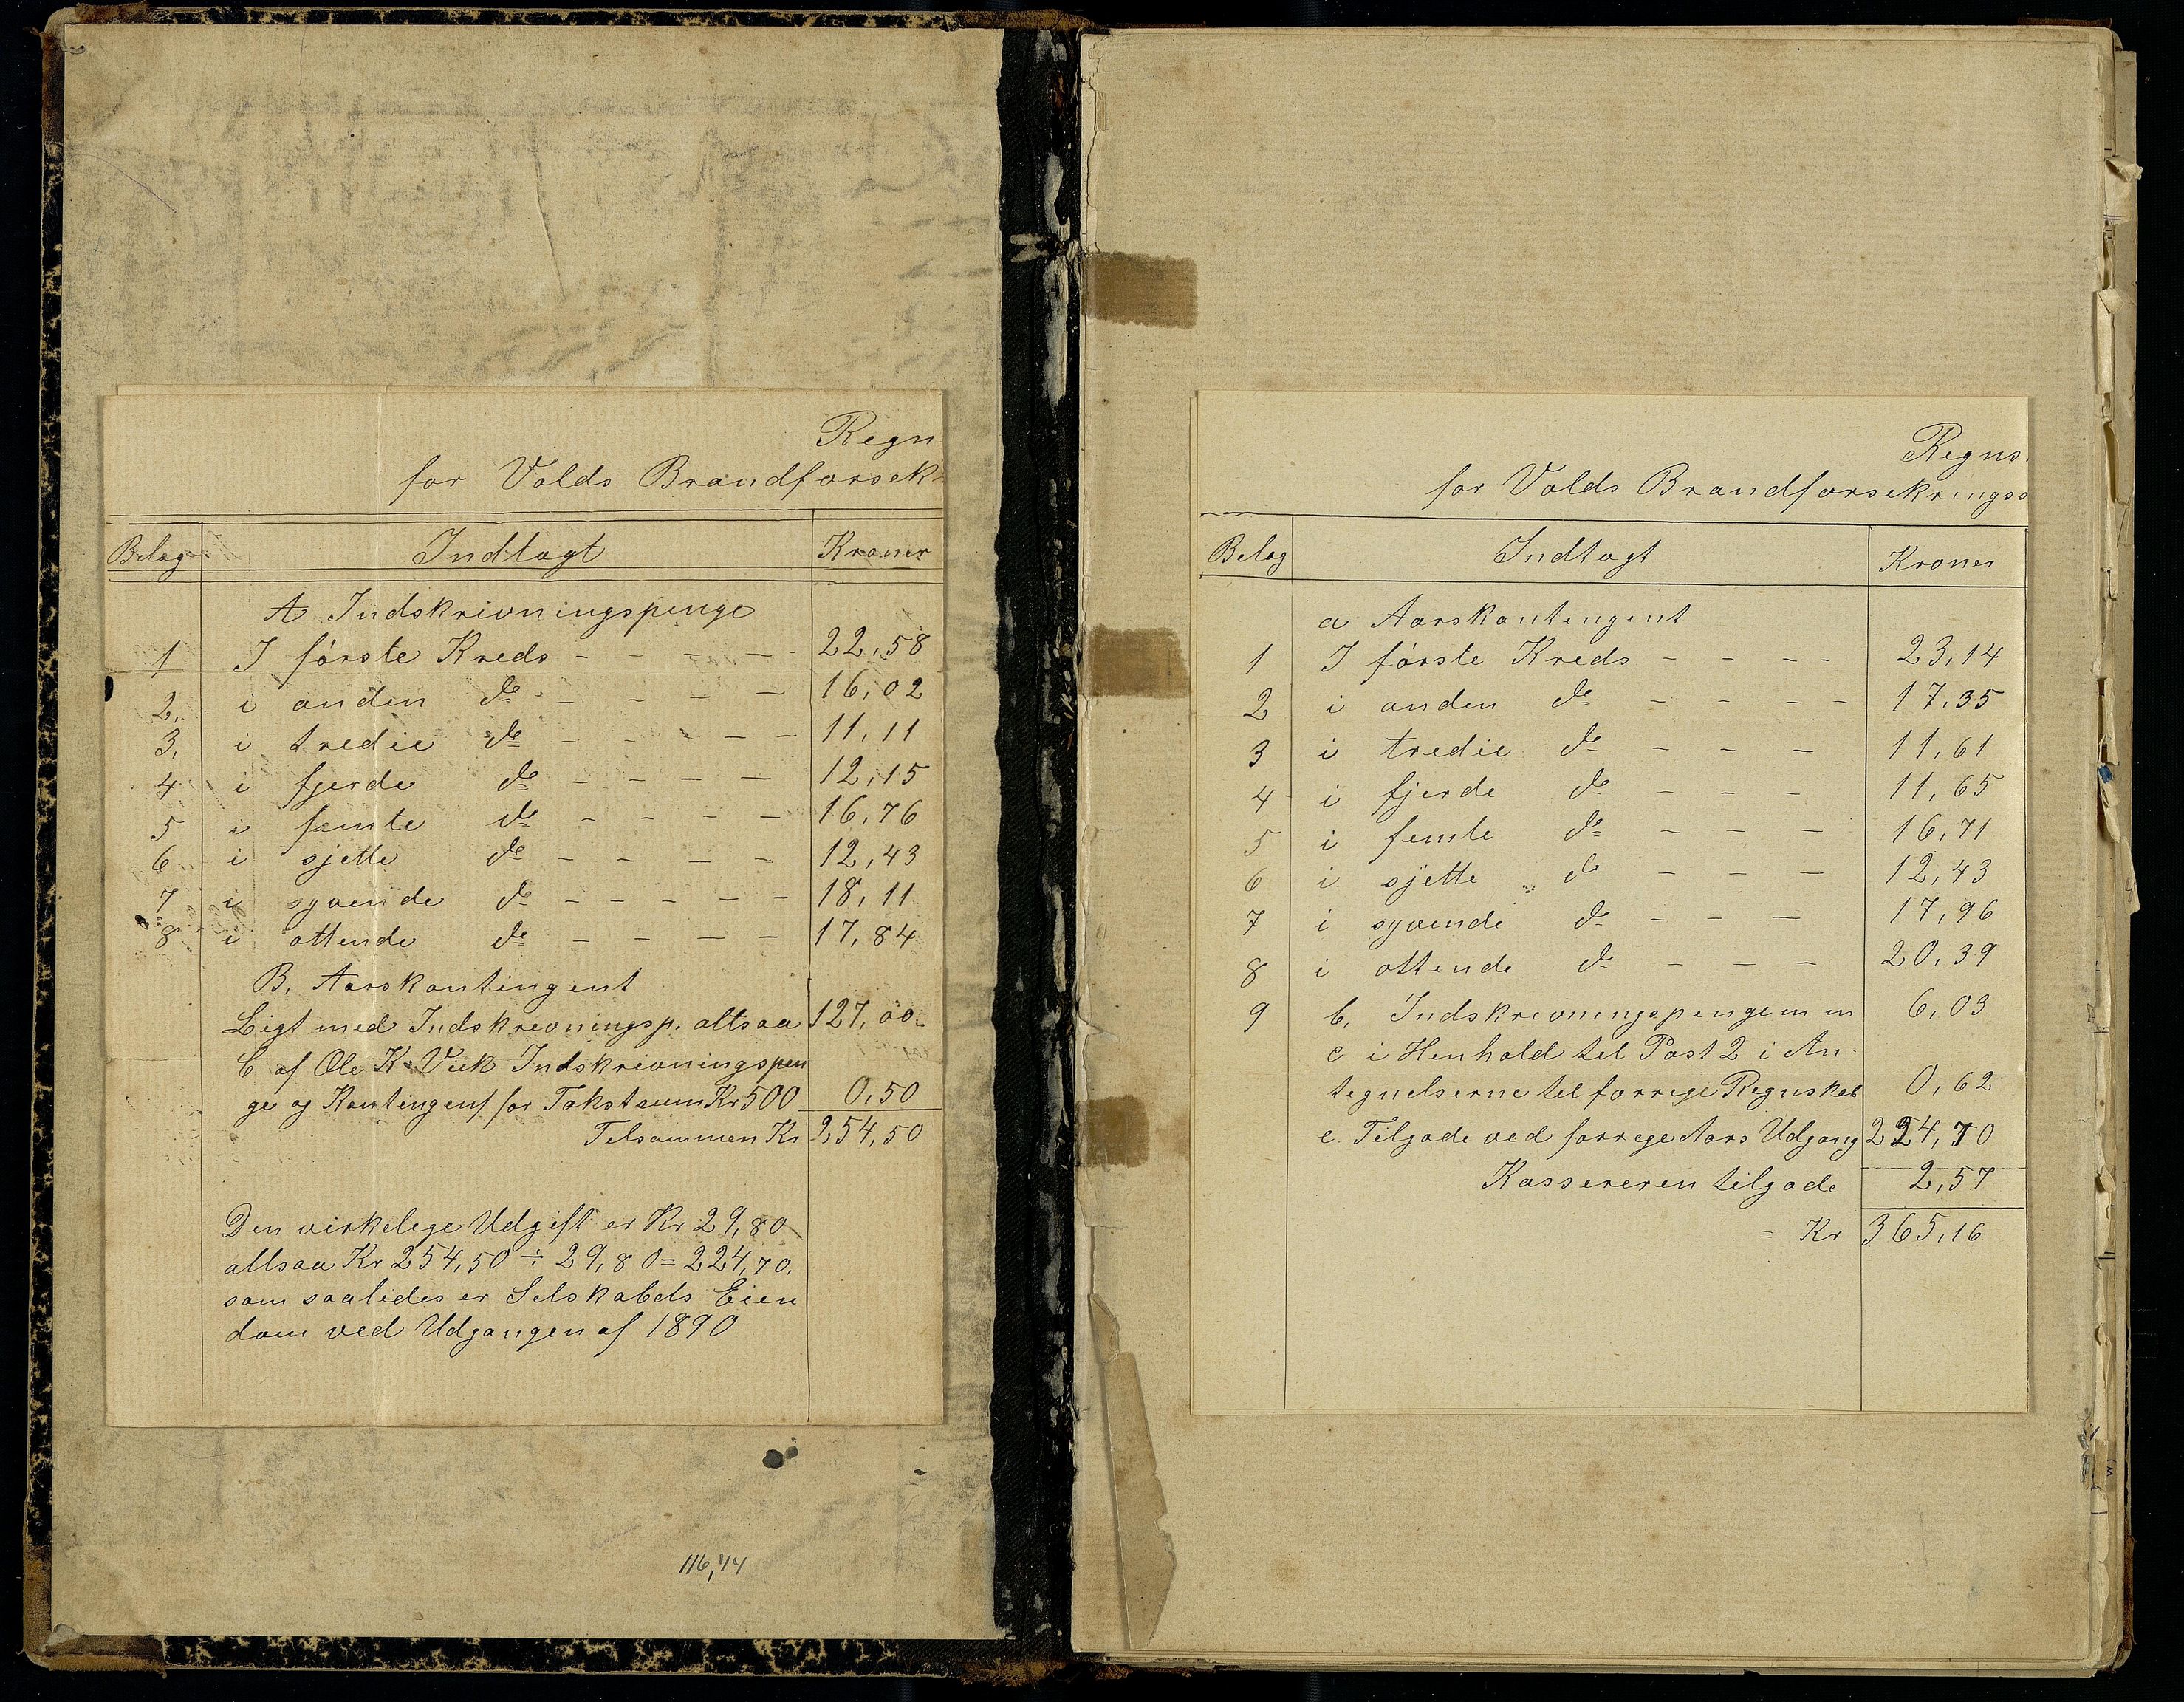 Regn
for Volds Brandforsek
Belag Indtægt Kroner
A Indskrivningspenge
1 I første Kreds - - - - 22,58
2, i anden do - - - - 16,02
3, i tredie do - - - - - 11,11
4 i fjerde do - - - - 12,15
5 i femte do - - - - 16,76
6 i sjette do - - - - 12,43
7 i syvende do - - - - - 18,11
8 i ottende do - - - - 17,84
B, Aarskontingent
Ligt med Indskrevningsp. altsaa 127,00
C af Ole K Viik Indskrivningspen
ge og Kontingent for Takstsum Kr 500 0,50
Tilsammen Kr 254,50
Den virkelege Udgift er Kr 29,80
altsaa Kr 254,50 ÷ 29,80 = 224,70.
som saaledes er Selskabets Eien
dom ved Udgangen af 1890
116,44
Regns
for Volds Brandforsekringss
Belag Indtægt Kroner
a Aarskontingent
1 I første Kreds - - - - 23,14
2 i anden do - - - - 17,35
3 i tredie do - - - 11,61
4 i fjerde do - - - 11,65
5 i femte do - - - 16,71
6 i sjette do - - - 12,43
7 i syvende do - - - 17,96
8 i ottende do - - - 20,39
9 b, Indskrevningspenge m m 6,03
c i Henhold til Post 2 i An
tegnelserne til forrege Regnskab 0,62
e Tilgode ved forrege Aars Udgang 224,70
Kassereren tilgode 2,57
= Kr 365,16